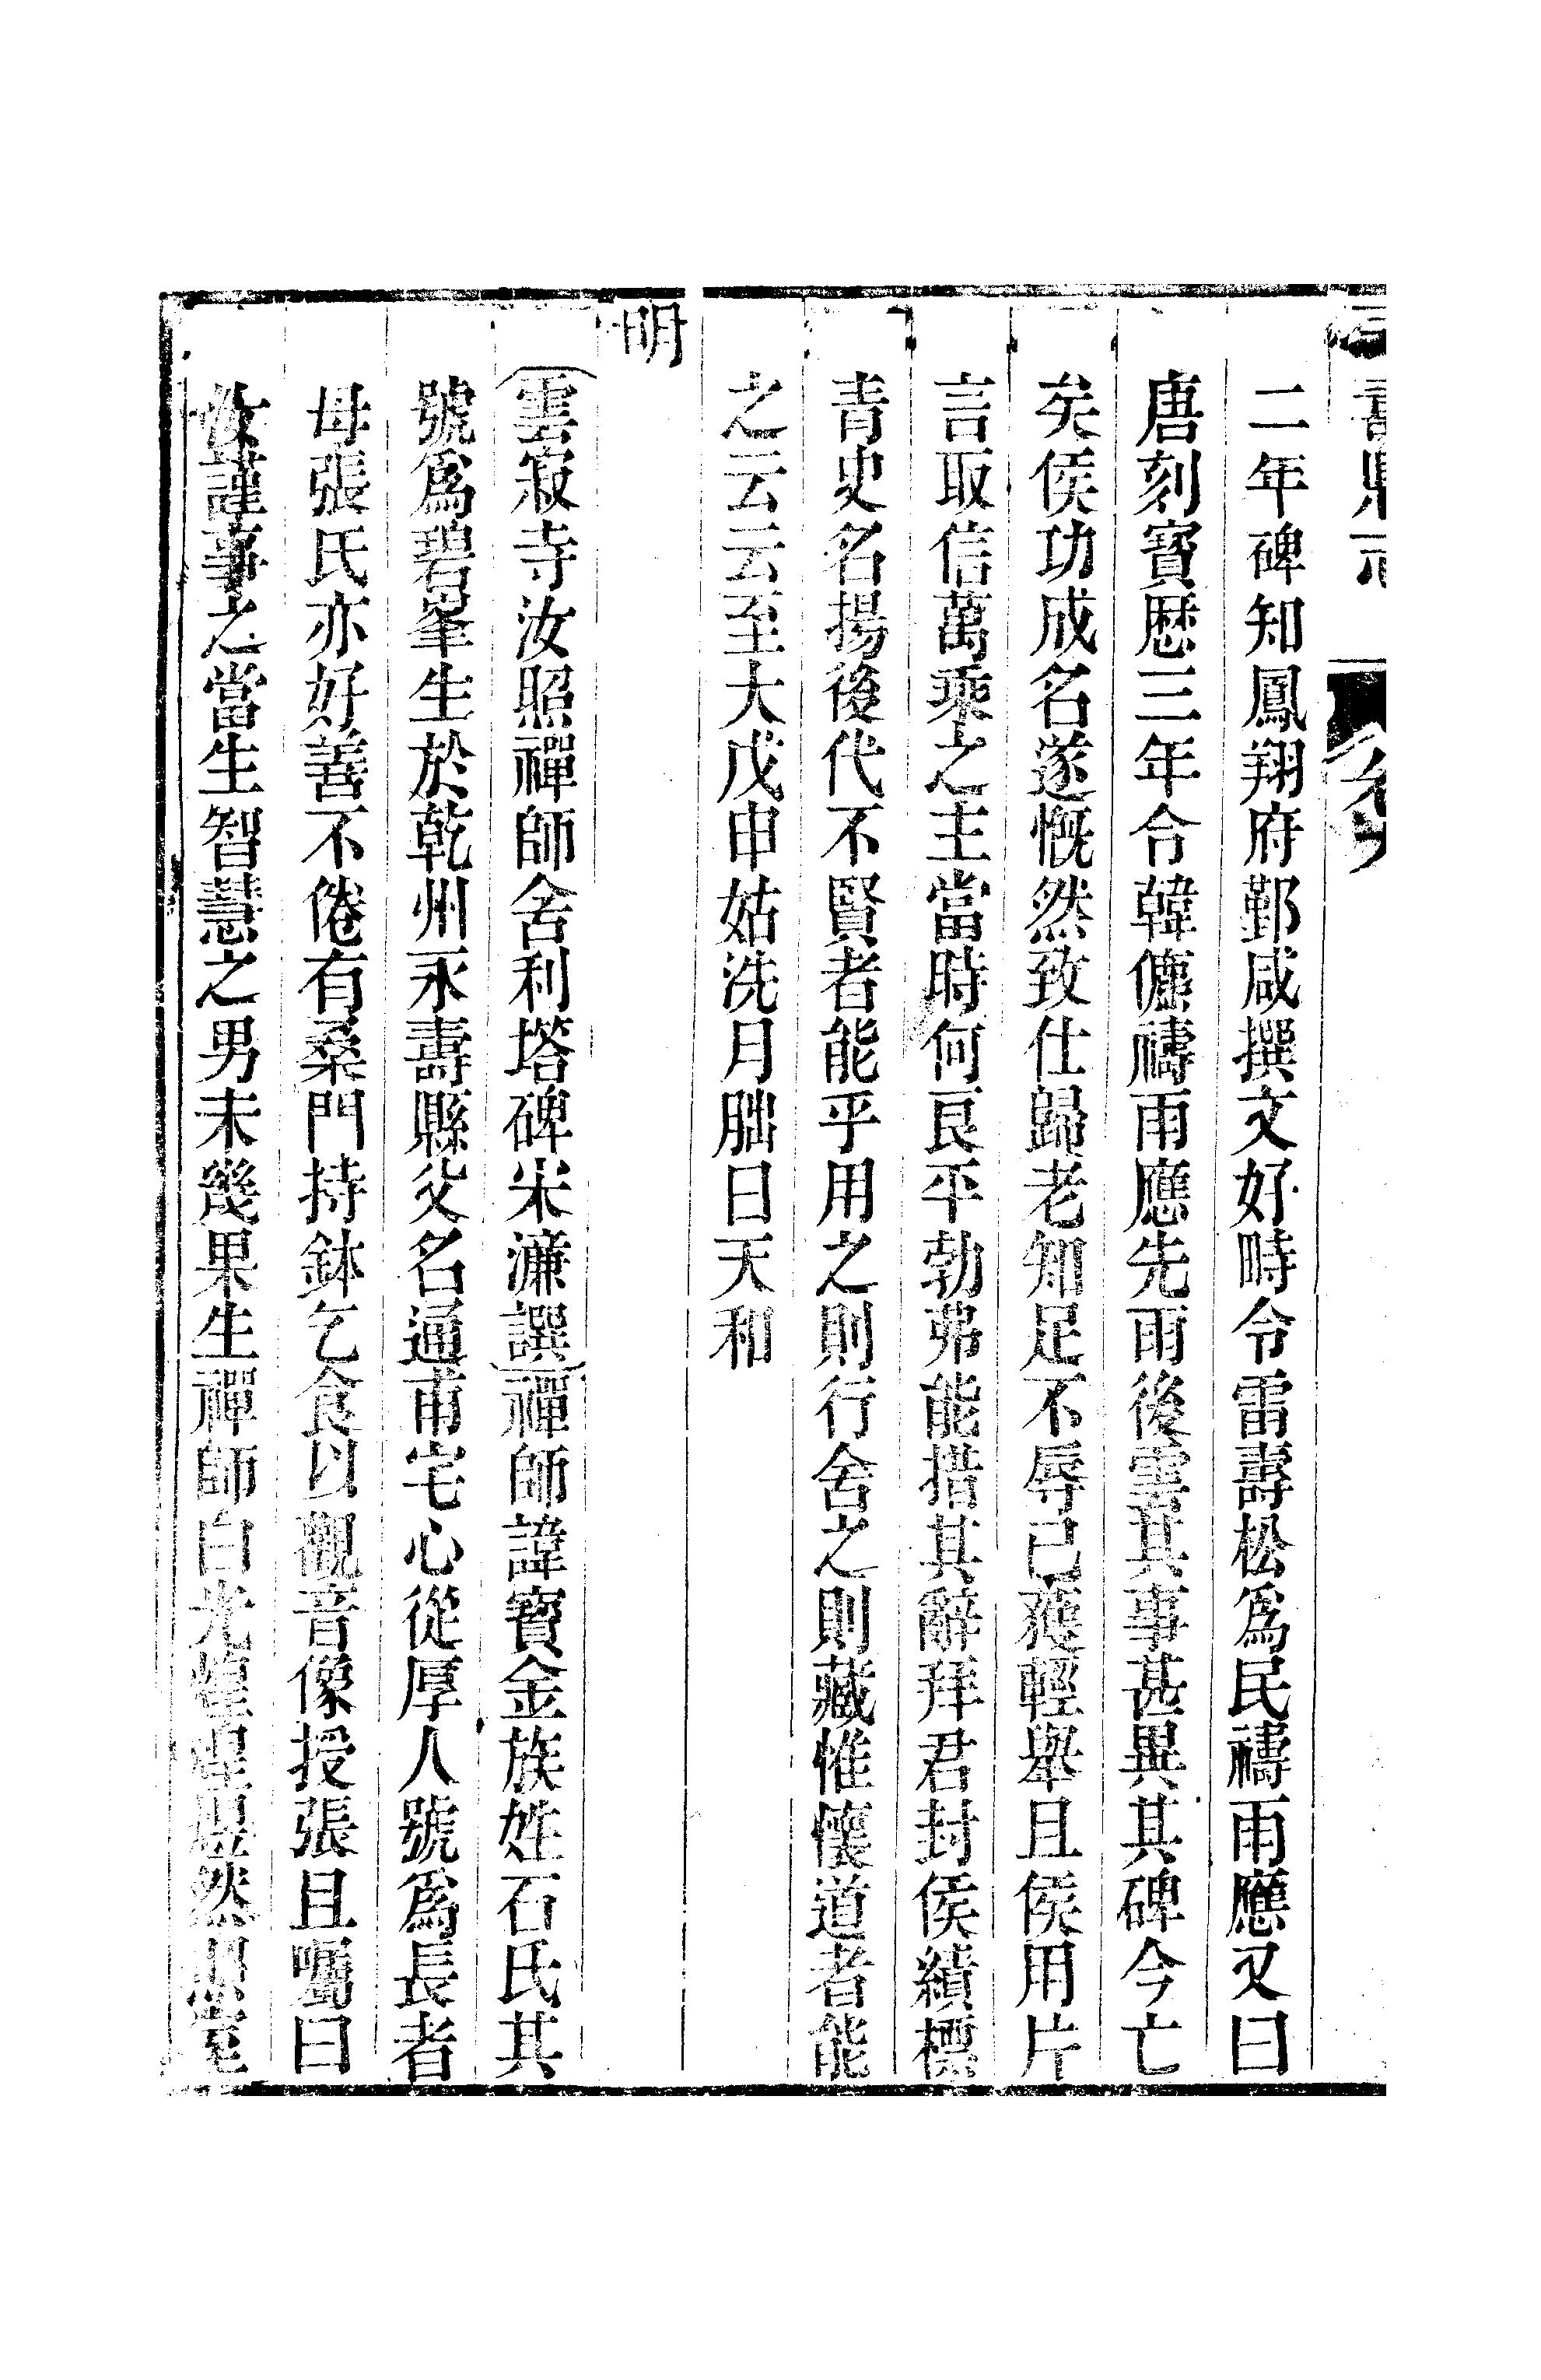 二年碑知鳳翔府鄞咸撰文好畤令雷壽松爲民禱雨應又曰
唐刻寶歷三年令韓僡禱雨應先雨後雲其事甚異其碑今亡
矣侯功成名遂慨然致仕歸老知足不辱已獲輕舉且侯用片
言取信萬乘之主當時何艮平勃弗能措其辭拜君封侯績標
青史名揚後代不賢者能乎用之則行舍之則藏惟懷道者能
之云云至大戊申姑洗月朏日天和
明
雲寂寺汝照禪師舍利塔碑宋濂譔禪師諱寶金族姓石氏其
號爲碧峯生於乾州永壽縣父名通甫宅心從厚人號爲長者
母張氏亦好善不倦有桑門持鉢乞食以觀音像授張且囑曰
汝謹事之當生智慧之男未幾果生禪師白光煌煌照然照室